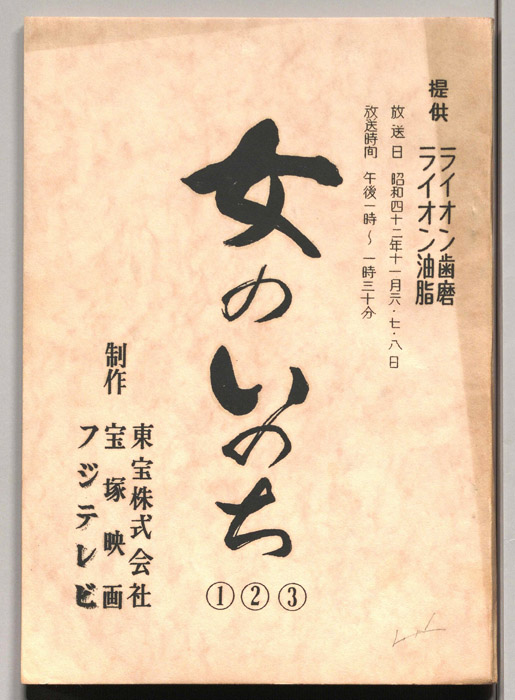 提供 ライオン歯磨
ライオン油脂
放送日 昭和四十二年十一月六・七・八日
放送時間 午後一時～一時三十分
女のいのち
①②③
制作 東宝株式会社
宝塚映画
フジテレビ